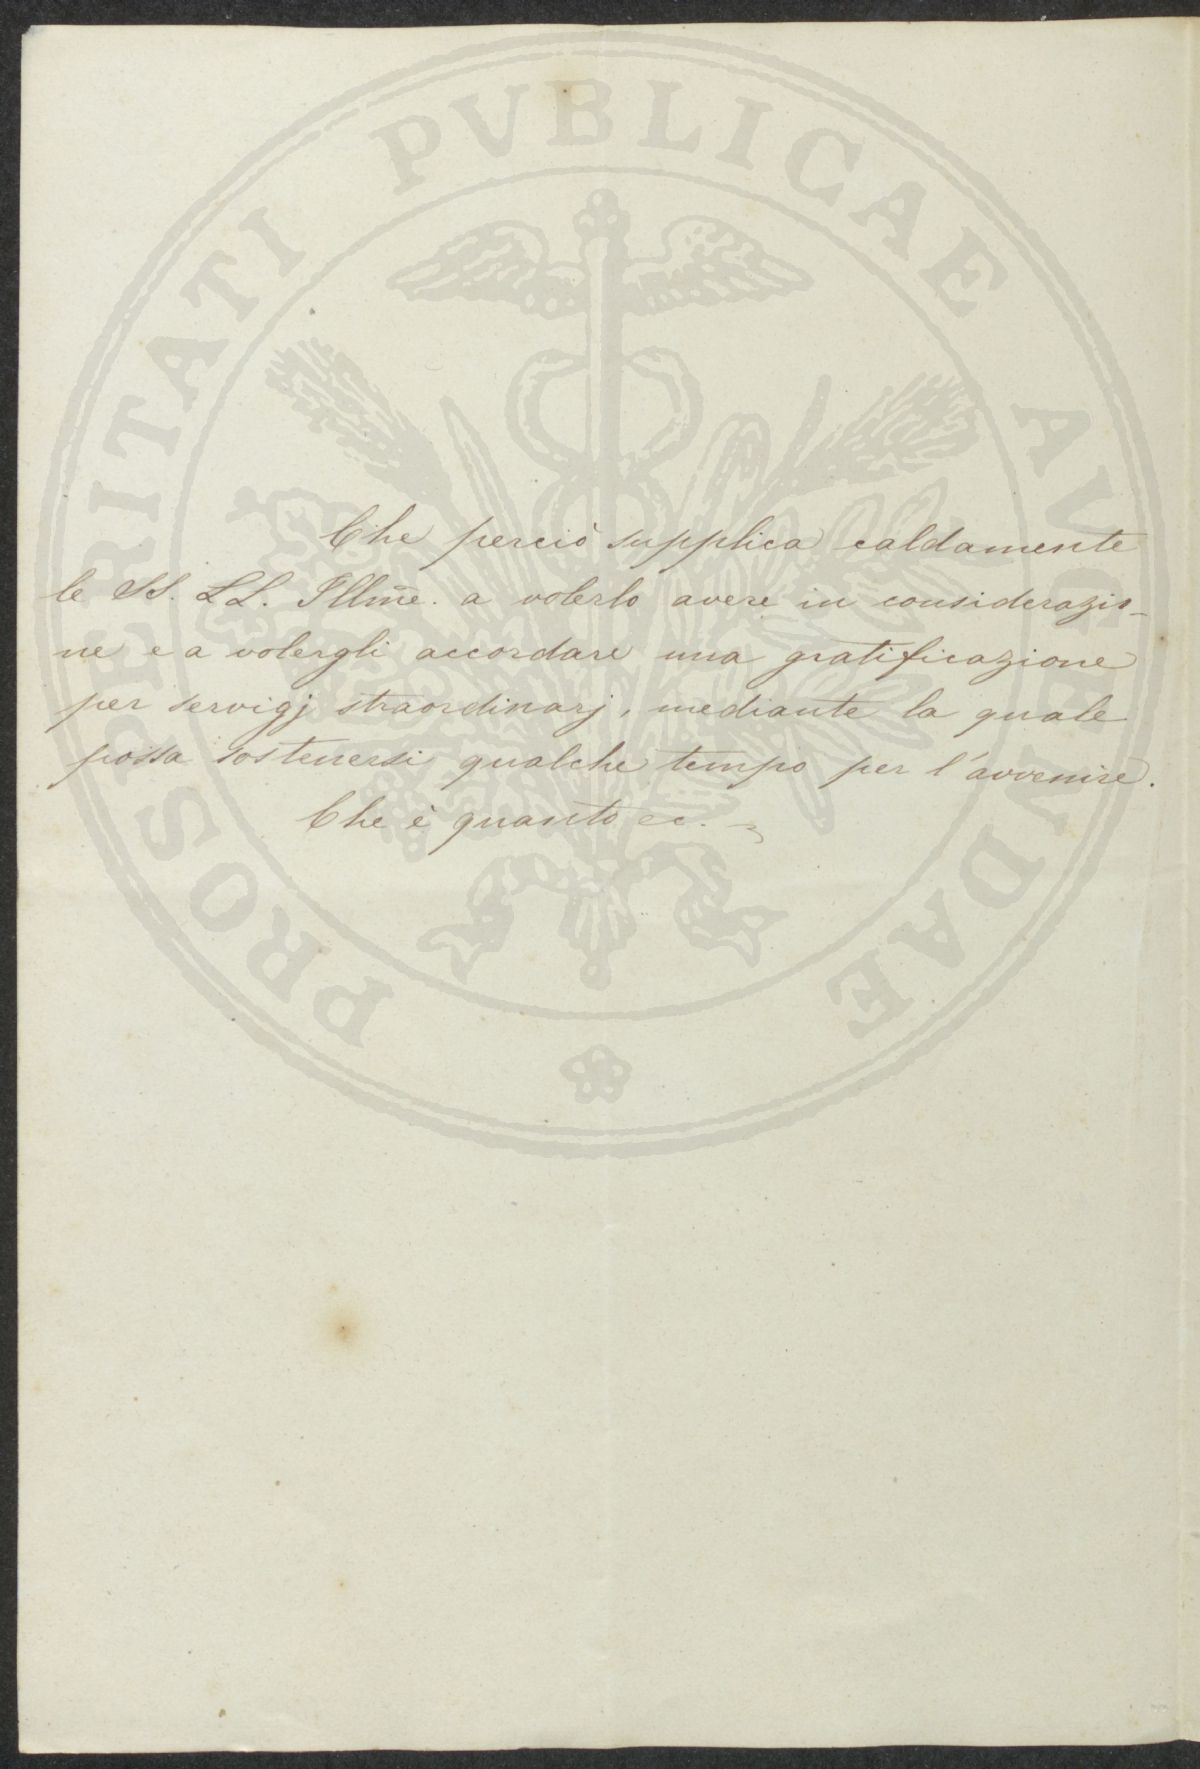 PROSPERITATI PVBLICAE AVGENDAE
Che perciò supplica caldamente
le SS. LL. Illm̃e. a volerlo avere in considerazio-
ne e a volergli accordare una gratificazione
per servigj straordinarj, mediante la quale
possa sostenersi qualche tempo per l'avvenire.
Che è quanto ec.